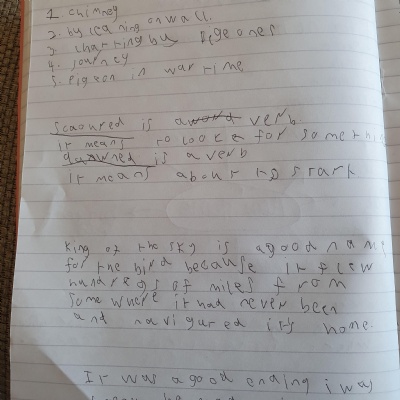 1. chimney
2. by leaning on wall.
3 chatting by Pigeones
4. journey
5. pigeon in wartime
scaoured is a word verb
it means to look for somethin
quawned is a verb
it means about to start
King of the sky is a good name
for the bird because it flew
hundreds of miles from
some where it had never been
and navigured it's home.
It was a good ending i was